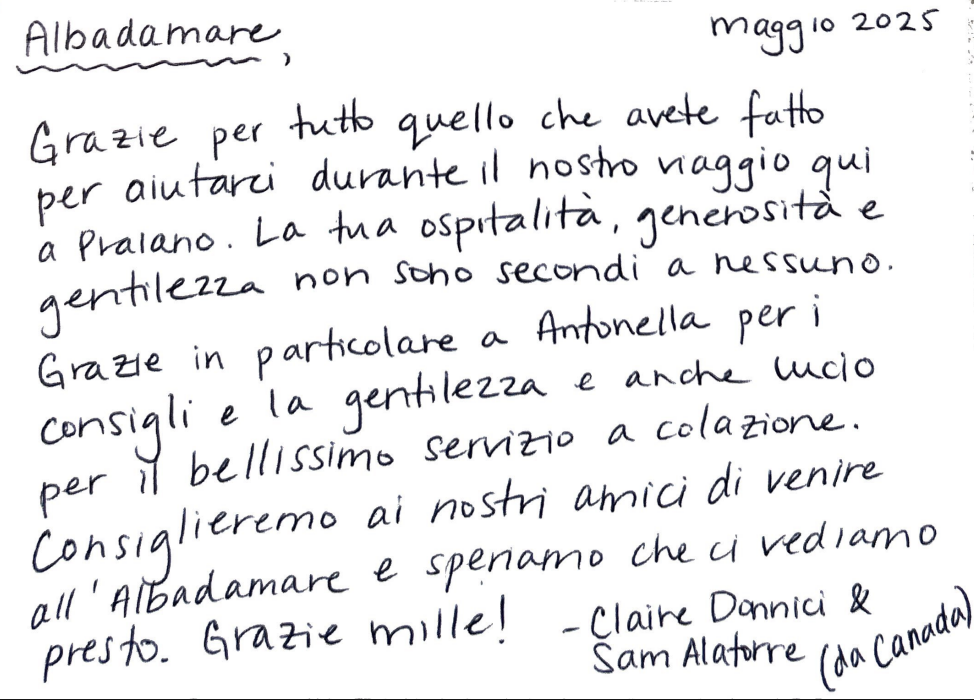 Albadamare,
maggio 2025
Grazie per tutto quello che avete fatto
per aiutarci durante il nostro viaggio qui
a Praiano. La tua ospitalità, generosità e
gentilezza non sono secondi a nessuno.
Grazie in particolare a Antonella per i
consigli e la gentilezza e anche Lucio
per il bellissimo servizio a colazione.
Consiglieremo ai nostri amici di venire
all'Albadamare e speriamo che ci vediamo
presto. Grazie mille!
- Claire Donnici &
Sam Alatorre (da Canada)